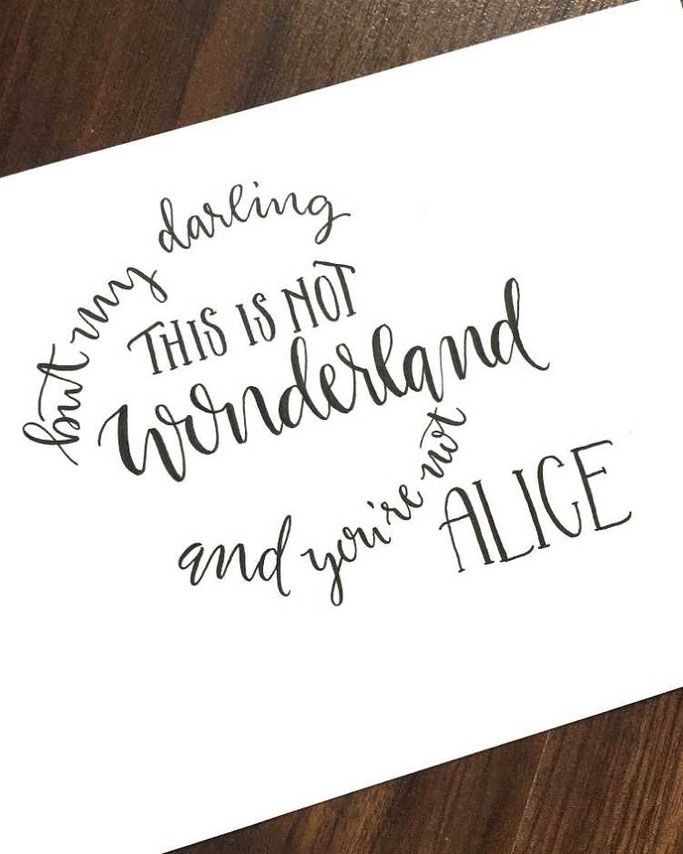 but my darling
THIS IS NOT
wonderland
and you're not
ALICE